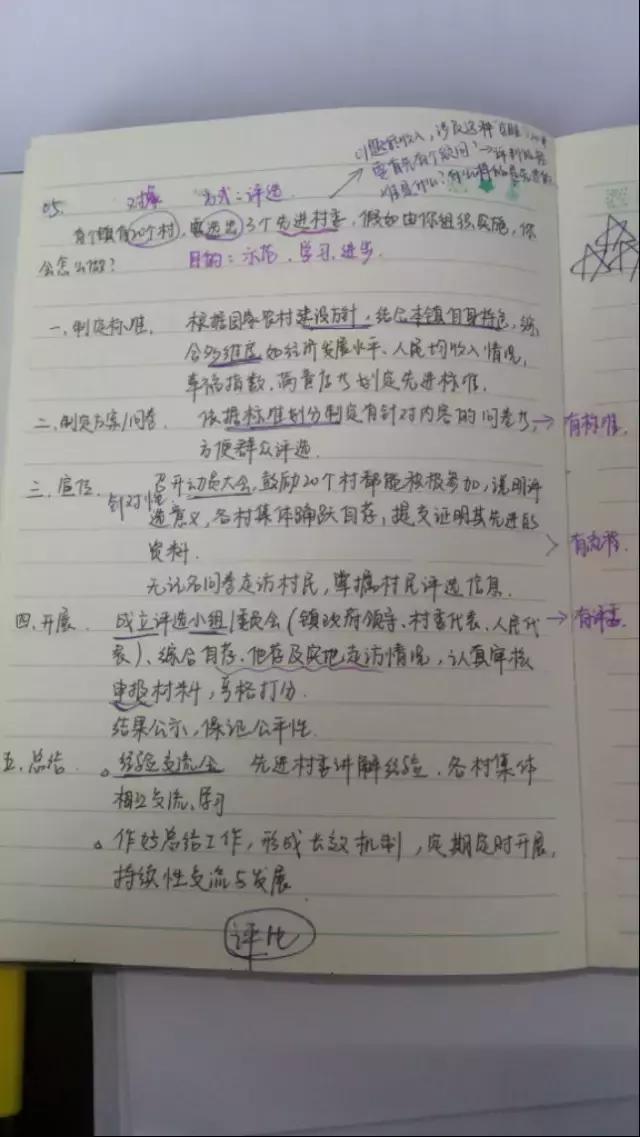 要有先有个疑问?→评判标准
05. 对象 方式:评选
有个镇有20个村,要选出3个先进村委,假如由你组织实施,你
会怎么做? 目的:示范、学习、进步.
一、制定标准. 根据国家农村建设方针,结合本镇自身特色,综
合多维度如经济发展水平、人民均收入情况,
幸福指数、满意度划定先进标准.
二、制定方案/问卷 依据标准划分制定有针对内容的问卷 → 有标准.
方便群众评选.
三、宣传. 召开动员大会,鼓励20个村都能积极参加,说明评
针对性 选意义,各村集体踊跃自荐,提交证明其先进的
资料. > 有流程.
无记名问卷走访村民,掌握村民评选信息.
四、开展. 成立评选小组/委员会(镇政府领导、村委代表、人民代 → 有评委.
表)、综合自荐、他荐及实地走访情况,认真审核
申报材料,严格打分.
结果公示,保证公平性.
五、总结 。经验交流会 先进村委讲解经验,各村集体
相互交流、学习
。作好总结工作,形成长效机制,定期定时开展,
持续性交流与发展
评比